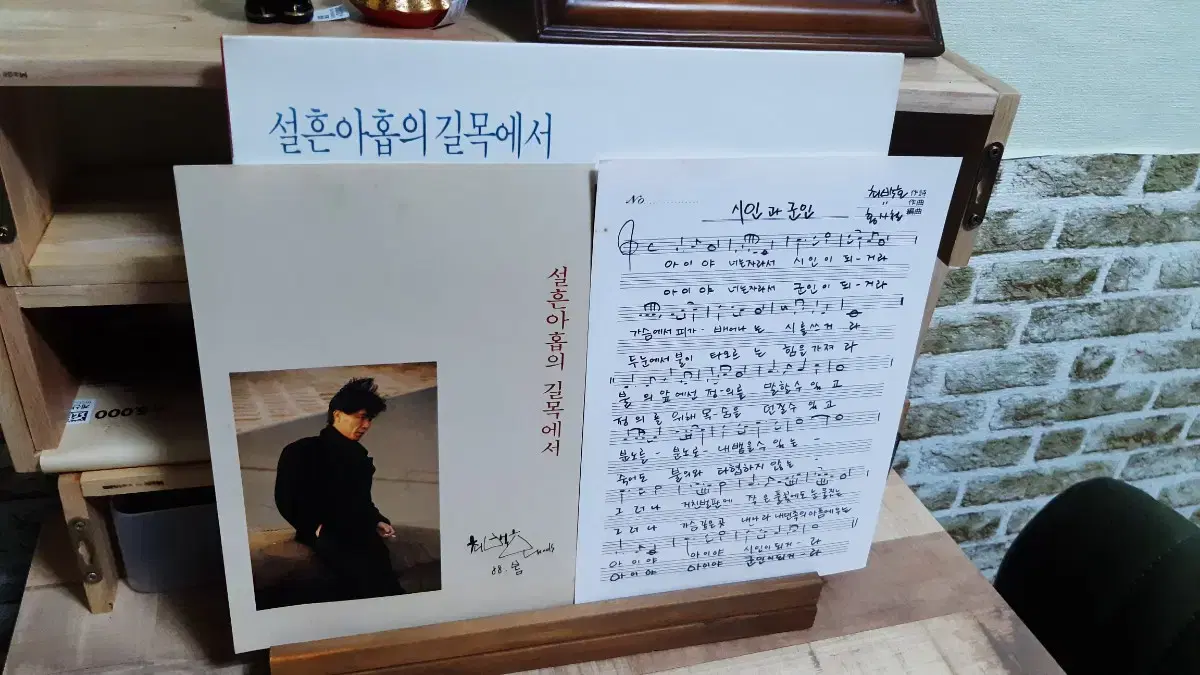 설흔아홉의 길목에서
설흔아홉의 길목에서
88. 봄
No
시인과 군인
作詩
作曲
編曲
아이야 너는자라서 시인이 되-거라
아이야 너는자라서 군인이 되-거라
가슴에서피가- 배어나 는 시를쓰거 라
두눈에서불이 타오르 는 힘을가져 라
불의앞에선 정-의를 말할수있고
정의를 위해 목숨을 던질수있고
분노를- 분노로- 내뱉을수 있는 -
죽어도 불의와 타협하지 않는 -
그러나 거친벌판에 작은풀꽃에도
그러나 가슴깊은곳 내나라 내민족의아픔에
아이야 아이야 시인이되거-라
아이야 아이야 군인이되거-라
8,000